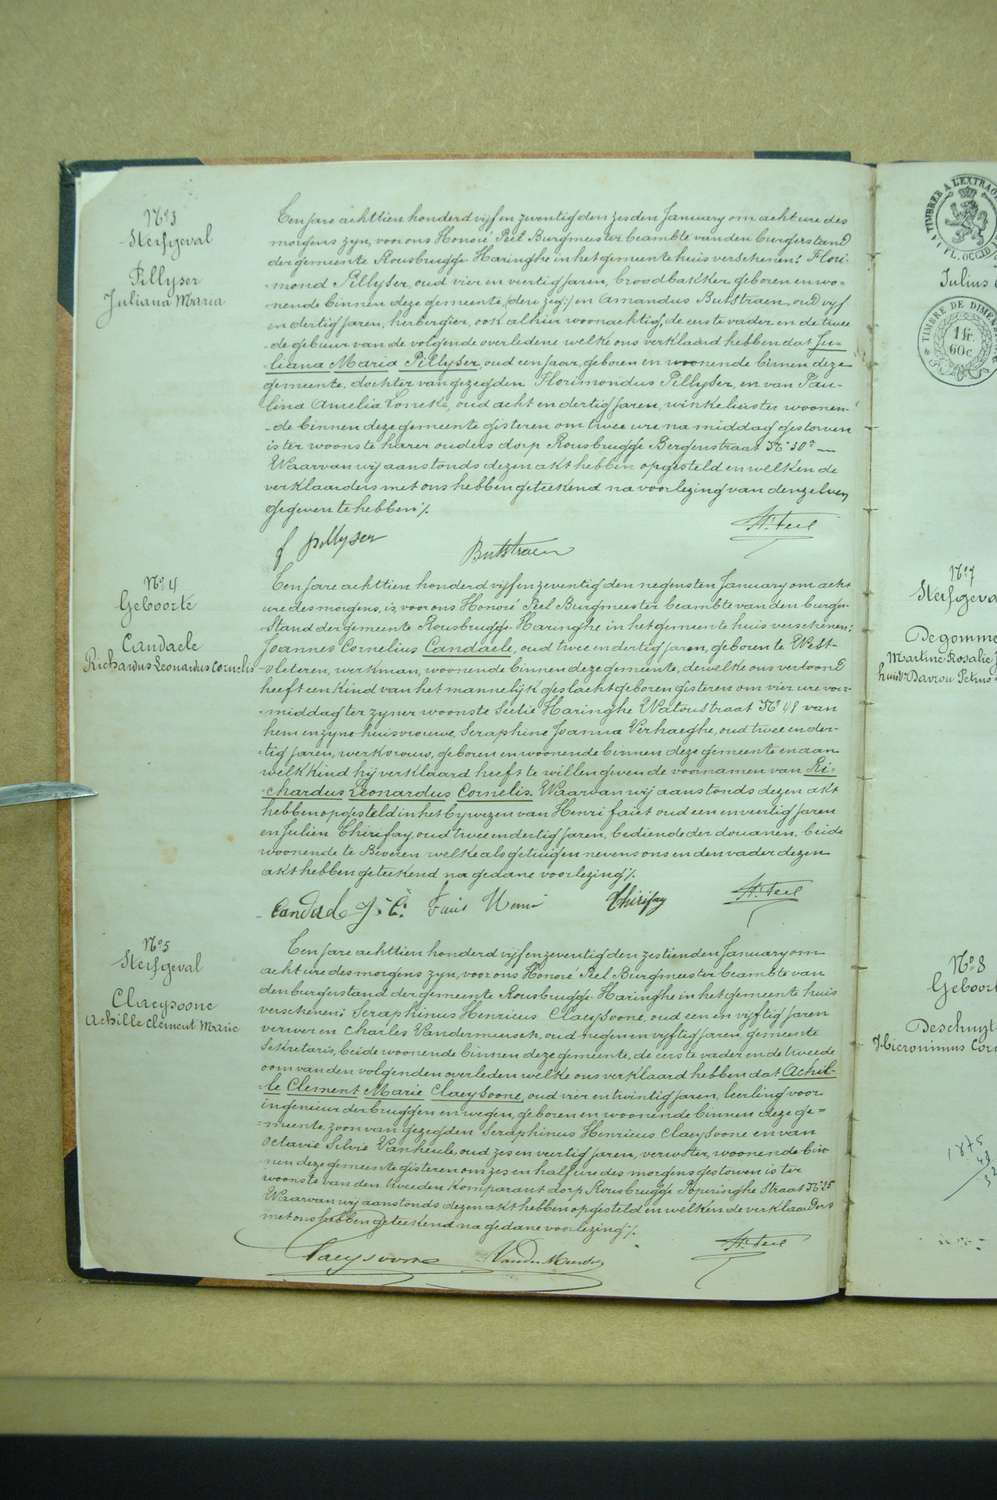 N.o 3
Sterfgeval
Pillyser
Juliana Maria
Een Jare achttien honderd vyf en zeventig den zesden January om acht ure des
morgens zyn, voor ons Honoré Peel Burgmeester beambte van den burgerstand
der gemeente Rousbrugge-Haringhe in het gemeentehuis verschenen: Flori-
mond Pillyser, oud vier en veertig jaren, broodbakker geboren en wo-
nende binnen deze gemeente, en Amandus Butstraen, oud vyf
en dertig jaren, herbergier, ook alhier woonachtig, de eerste vader en de twee
de gebuur van de volgende overledene welke ons verklaard hebben dat Ju-
liana Maria Pillyser, oud een jaar, geboren en woonende binnen deze
gemeente, dochter van gezegden Florimondus Pillyser, en van Pau-
lina Amelia oud acht en dertig jaren, winkelierster woonen-
de binnen deze gemeente gisteren om twee ure na middag gestorven
is ter woonste harer ouders dorp Rousbrugge Bergenstraat N.o 30.
Waarvan wij aanstonds dezen akt hebben opgesteld en welken de
verklaarders met ons hebben geteekend na voorlezing van denzelven
gegeven te hebben ./.
f pillyser Butstraen H. Peel
N.o 4
Geboorte
Candaele
Richardus Leonardus Cornelis
Een Jare achttien honderd vyf en zeventig den negensten January om acht
ure des morgens, is voor ons Honoré Peel Burgmeester beambte van den burger-
stand der gemeente Rousbrugge-Haringhe in het gemeente huis verschenen:
Joannes Cornelius Candaele, oud twee en dertig jaren, geboren te West-
vleteren, werkman, woonende binnen deze gemeente, dewelke ons vertoond
heeft een kind van het mannelijk geslacht geboren gisteren om vier ure voor-
middag ter zyner woonste Sectie Haringhe Watoustraat N.o 48 van
hem en zyne huisvrouwe, Seraphine Joanna Verhaeghe, oud twee en der-
tig jaren, werkvrouw, geboren en woonende binnen deze gemeente en aan
welk kind hij verklaard heeft te willen geven de voornamen van Ri-
chardus Leonardus Cornelis. Waarvan wij aanstonds dezen akt
hebben opgesteld in het bywezen van Henri Faict oud een en veertig jaren
en Julien Thirifay, oud twee en dertig jaren, bediende der douanen, beide
woonende te Beveren welke als getuigen nevens ons en den vader dezen
akt hebben geteekend na gedane voorlezing ./.
Candaele J. C. Faict Henri Thirifay H. Peel
N.o 5
Sterfgeval
Claeysoone
Achille Clément Marie
Een Jare achttien honderd vyf en zeventig den zestienden January om
acht ure des morgens zyn, voor ons Honoré Peel Burgmeester beambte van
den burgerstand der gemeente Rousbrugge-Haringhe in het gemeente huis
verschenen: Seraphinus Henricus Claeysoone, oud een en vyftig jaren
verwer en Charles Vandermeersch, oud negen en vyftig jaren, gemeente
Sekretaris, beide woonende binnen deze gemeente, de eerste vader en de tweede
oom van den volgenden overleden welke ons verklaard hebben dat Achil-
le Clement Marie Claeysoone, oud vier en twintig jaren, leerling voor
ingenieur der bruggen en wegen, geboren en woonende binnen deze ge-
meente, zoon van gezegden Seraphinus Henricus Claeysoone en van
Octavie Silvie Vanheule, oud zes en veertig jaren, verwster, woonende bin
nen deze gemeente gisteren om zes en half ure des morgens gestorven is ter
woonste van den tweeden komparant dorp Rousbrugge Poperinghe Straat N.o 35
Waarvan wij aanstonds dezen akt hebben opgesteld en welken de verklaarders
met ons hebben geteekend na gedane voorlezing ./.
Claeysoone VanderMeersch H. Peel
TIMBRE A L'EXTRAO
FL. OCCID
Julius
TIMBRE DE DIMEN
1 fr.
60 c.
N.o 7
Sterfgeva
Degomme
Martine Rosalie
huisv. Davrou Petrus
N.o 8
Geboort
Deschuyt
Hieronimus Cor
1875